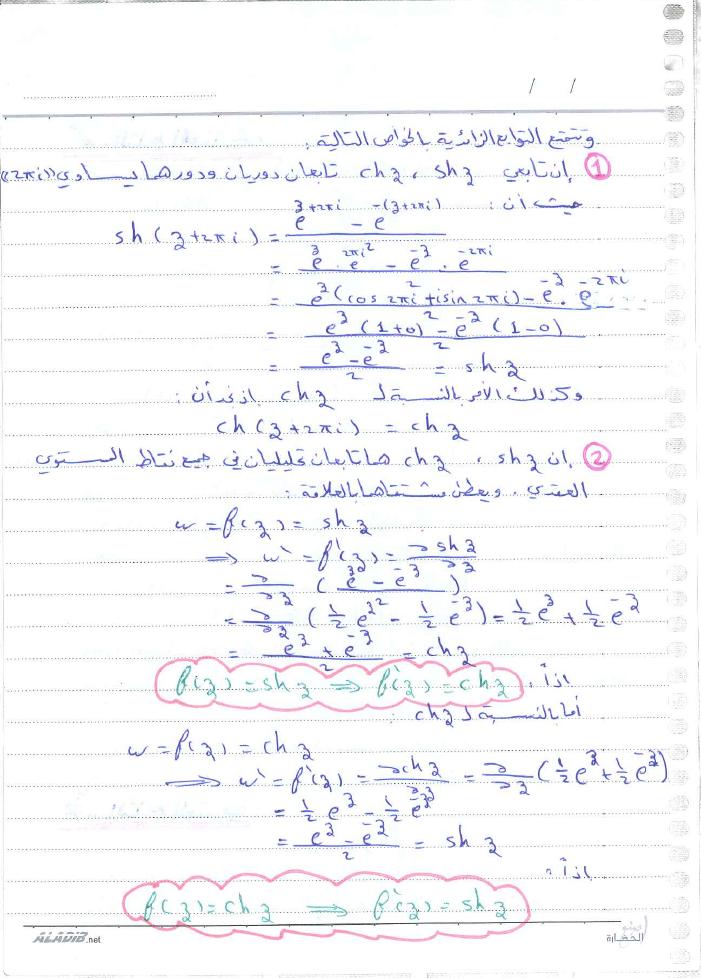 / /
وتتمتع التوابع الزائدية بالخواص التالية :
① إن تابعي chz ، shz تابعان دوريان ودورهما يساوي ((2πi))
حيث أن :
sh(z+2πi) = (e^(z+2πi) - e^-(z+2πi)) / 2
= (e^z . e^(2πi) - e^-z . e^(-2πi)) / 2
= (e^z (cos 2πi + i sin 2πi) - e^-z . e^(-2πi)) / 2
= (e^z (1+0) - e^-z (1-0)) / 2
= (e^z - e^-z) / 2 = sh z
وكذلك الأمر بالنسبة لـ chz إذ نجد أن :
ch(z+2πi) = chz
② إن chz ، shz هما تابعان تحليليان في جميع نقاط المستوي
العقدي ، ويعطى مشتقاهما بالعلاقة :
w = f(z) = sh z
⇒ w' = f'(z) = ∂shz / ∂z
= ∂/∂z ((e^z - e^-z) / 2)
= ∂/∂z (1/2 e^z - 1/2 e^-z) = 1/2 e^z + 1/2 e^-z
= (e^z + e^-z) / 2 = chz
إذاً : f(z) = shz ⇒ f'(z) = chz
أما بالنسبة لـ chz :
w = f(z) = chz
⇒ w' = f'(z) = ∂chz / ∂z = ∂/∂z (1/2 e^z + 1/2 e^-z)
= 1/2 e^z - 1/2 e^-z
= (e^z - e^-z) / 2 = sh z
إذاً :
f(z) = chz ⇒ f'(z) = shz
ALADIB.net
الحضارة